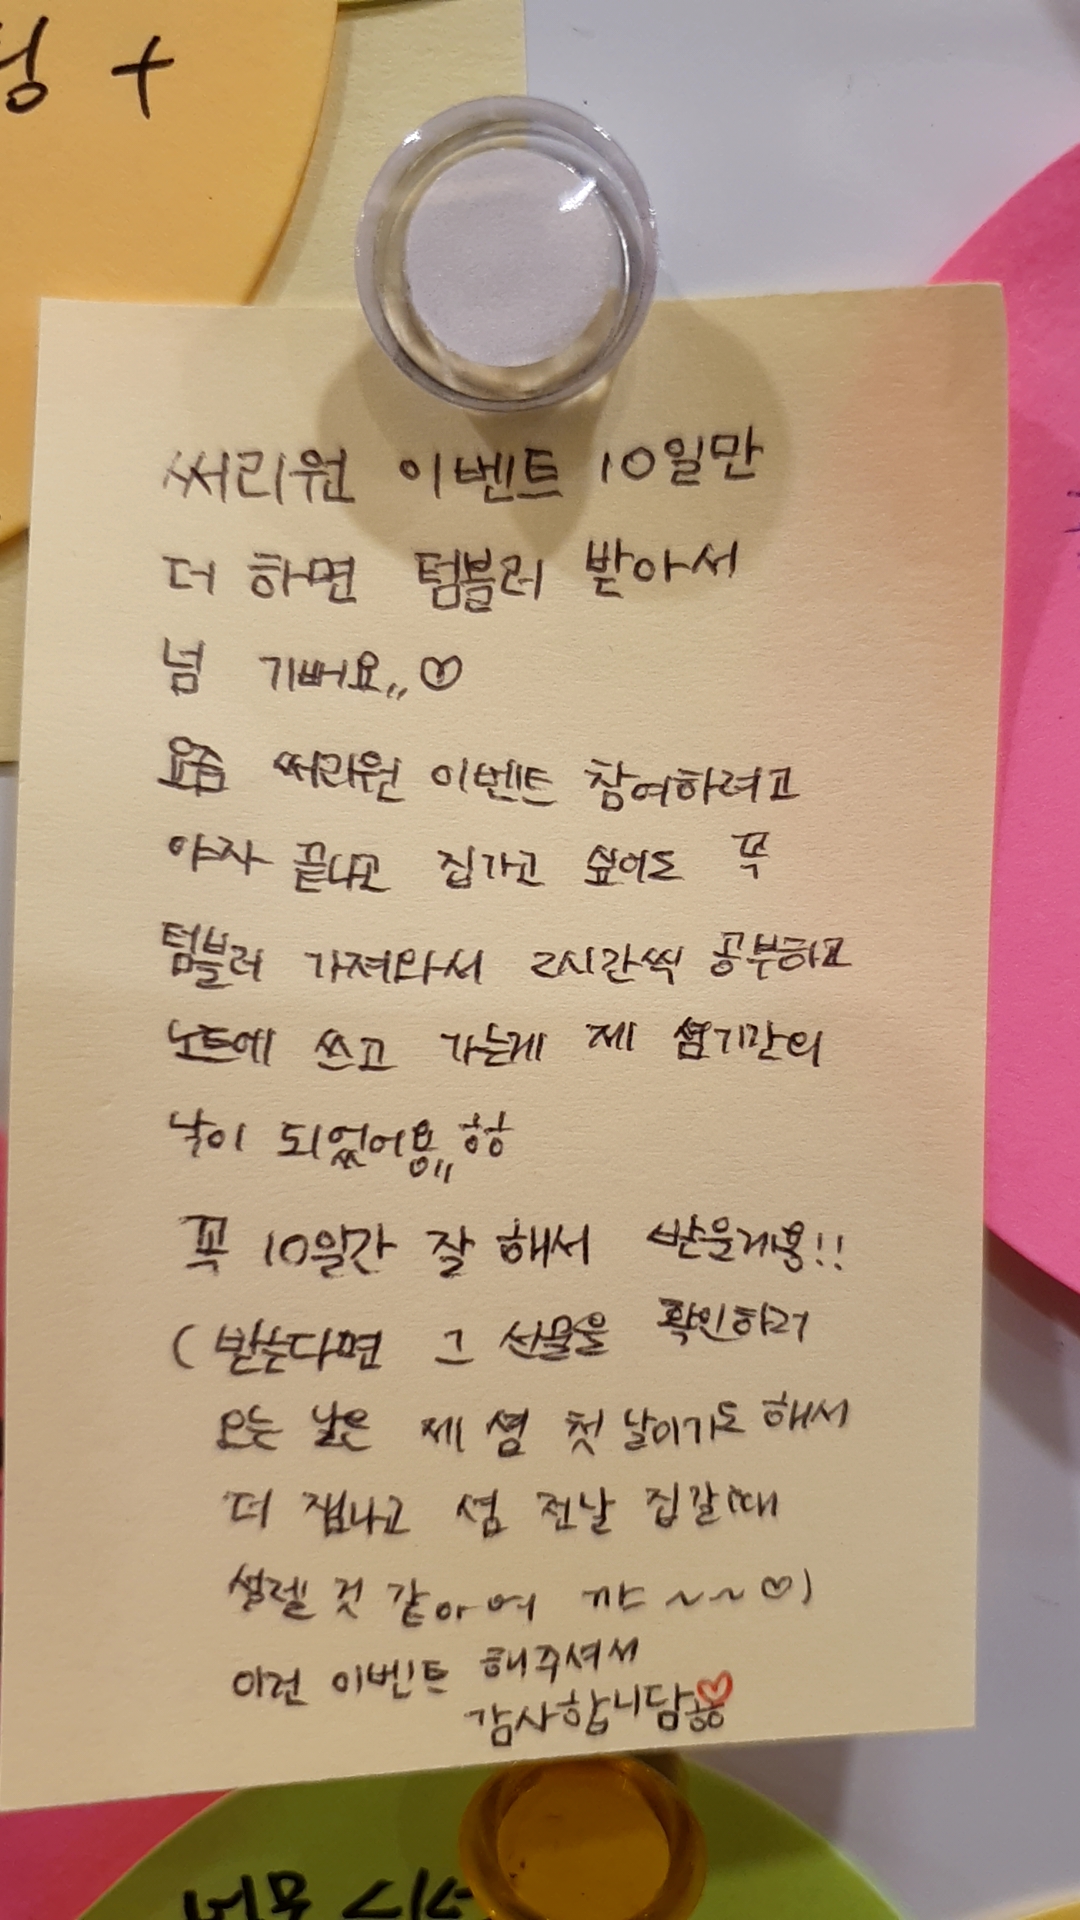 +
써리원 이벤트 10일만
더 하면 텀블러 받아서
넘 기뻐요,, ♡
요즘 써리원 이벤트 참여하려고
야자 끝나고 집가고 싶어도 꼭
텀블러 가져와서 2시간씩 공부하고
노트에 쓰고 가는게 제 셤기간의
낙이 되었어용,, 핳
꼭 10일간 잘 해서 받을게용!!
( 받는다면 그 선물을 확인하러
오는 날은 제 셤 첫 날이기도 해서
더 잼나고 셤 전날 집갈때
설렐 것 같아여 꺄~~♡)
이런 이벤트 해주셔서
감사합니담